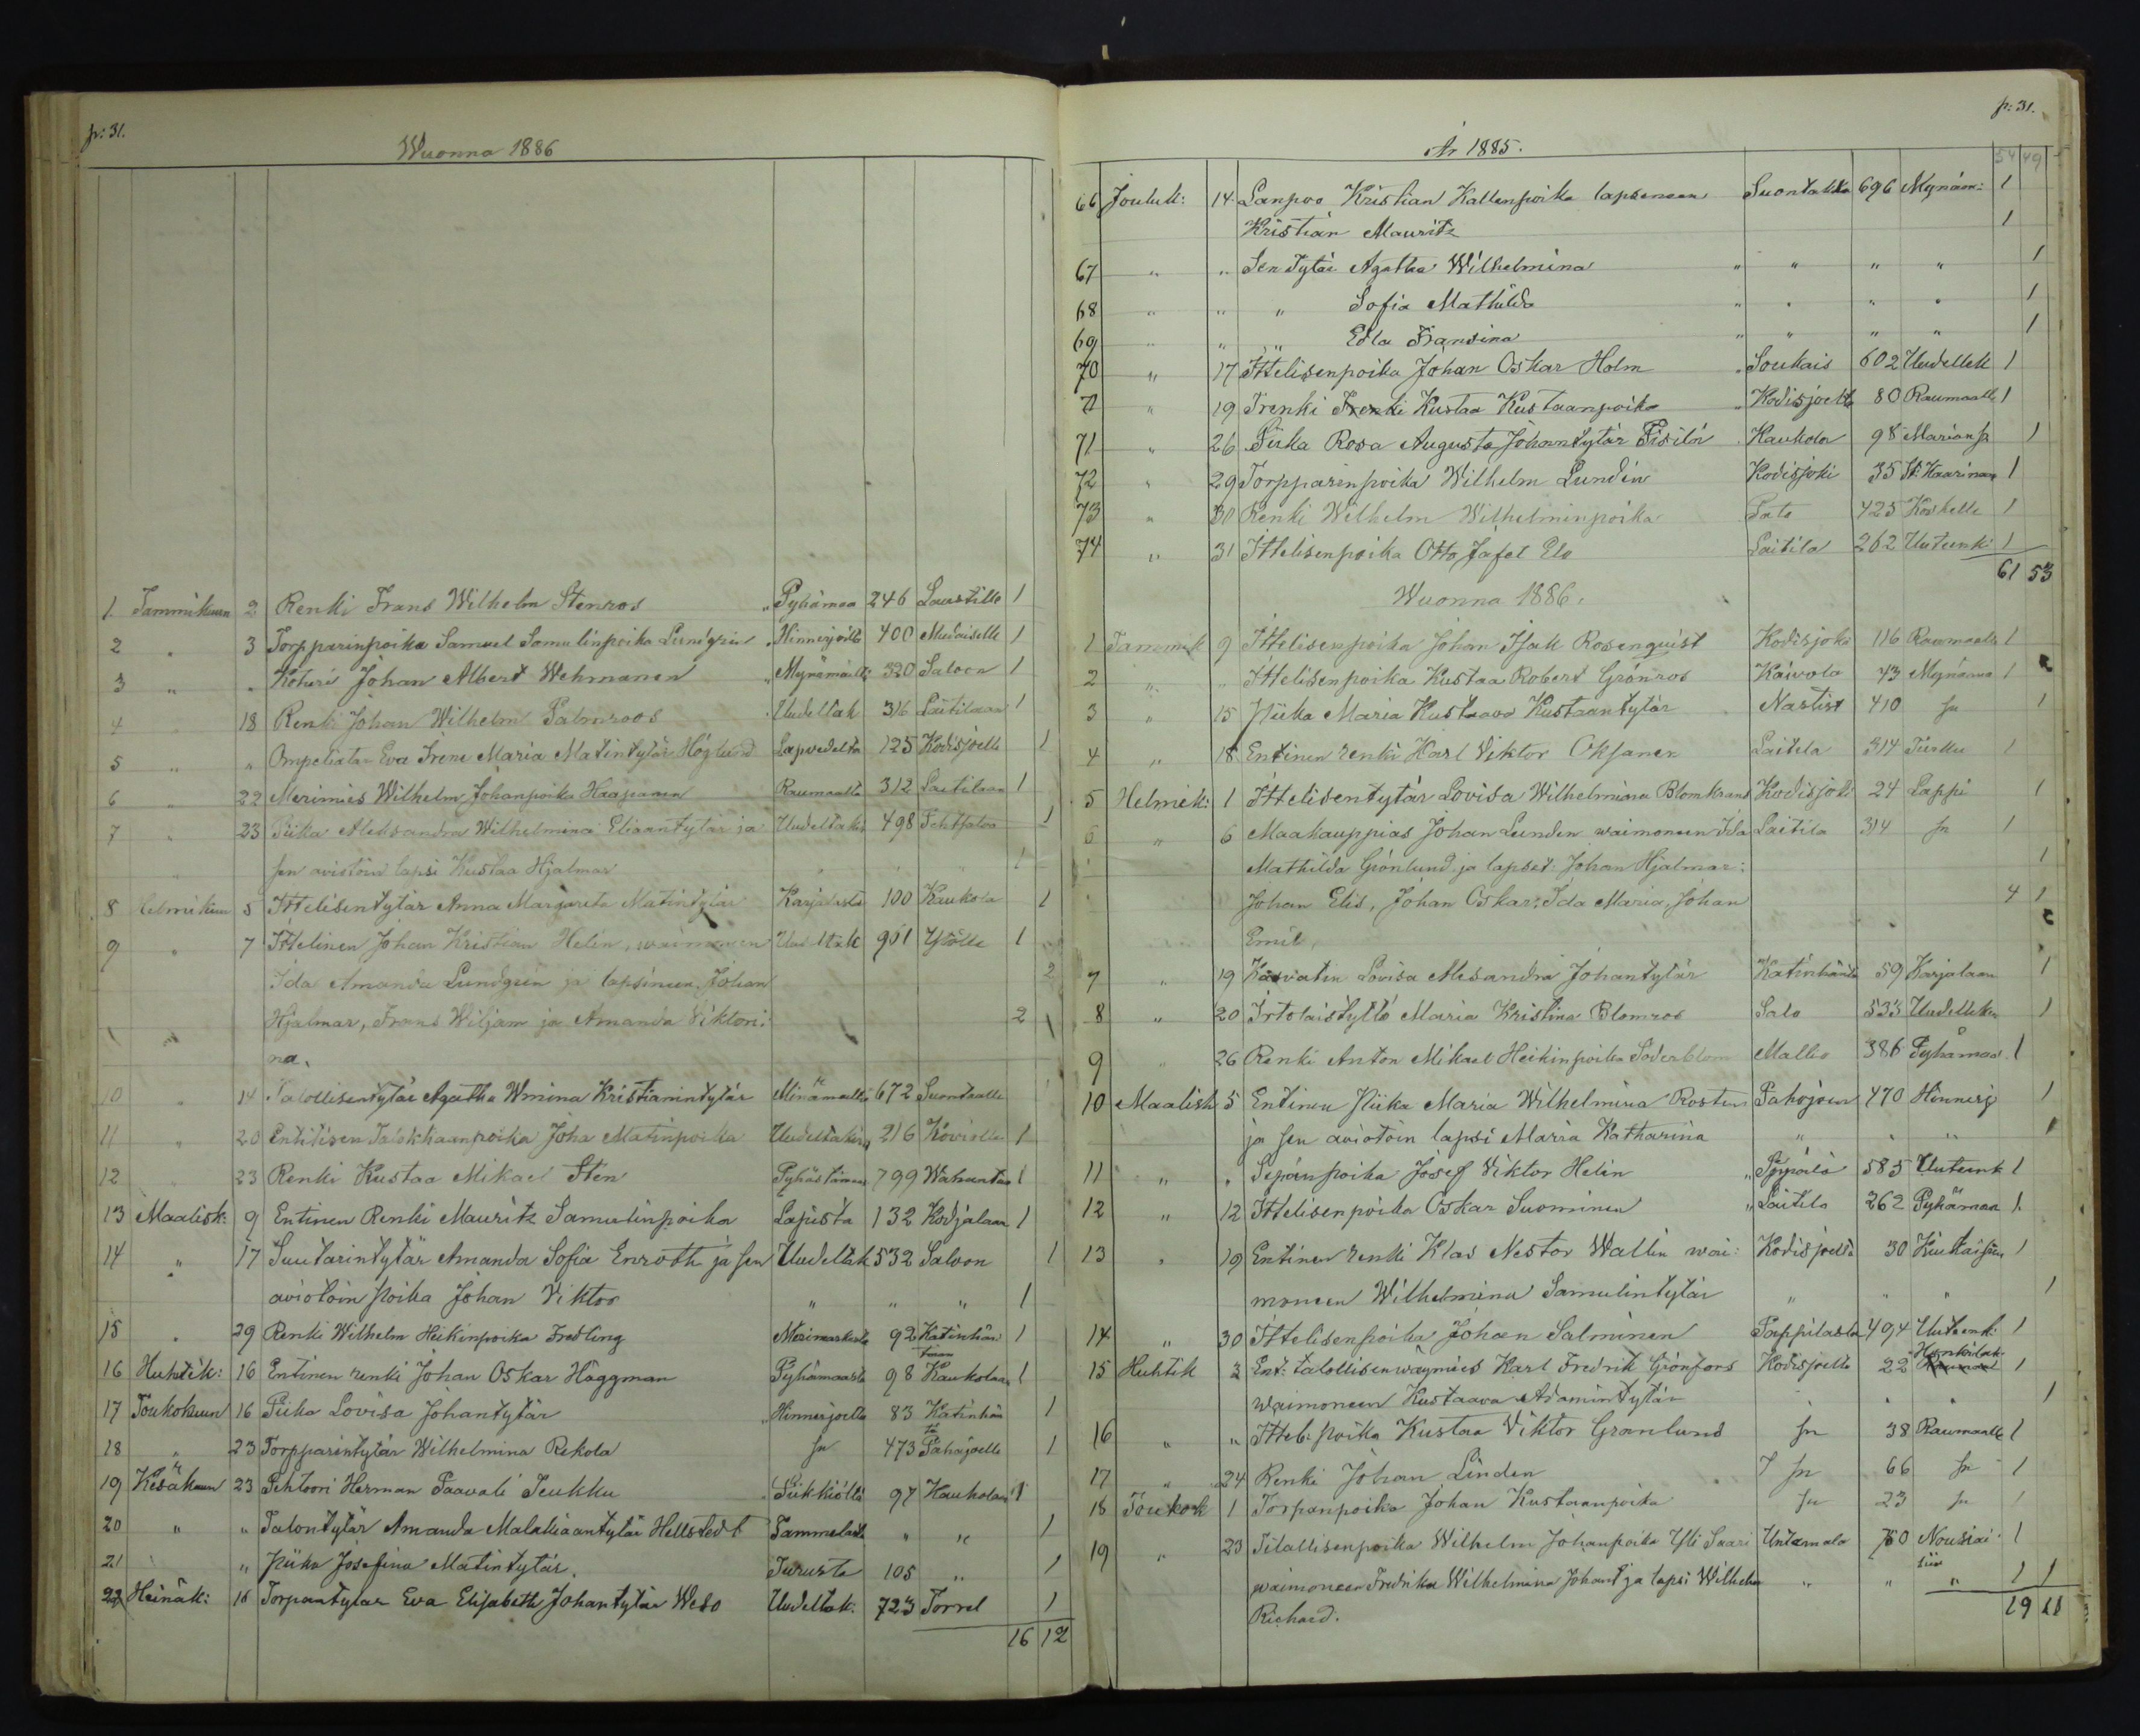 p: 31.
Wuonna 1886
1 Tammikuun 2 Renki Frans Wilhelm Stenros " Pyhämaa 246 Laustille 1
2 " 3 Torpparinpoika Samuel Samulinpoika Lundgrén " Hinnerjoilta 400 1
3 " " Johan Albert Wehmanen " Mynämäeltä 320 Saloon 1
4 18 Renki Johan Wilhelm Palmroos Uudeltak 316 Laitilaan 1
5 " " Ompeliatar Eva Irene Maria Matintytär Höglund Lapvedelta 125 Kodisjoelle 1
6 " 22 Merimies Wilhelm Johanpoika Haapanen Raumaalta 312 Laitilaan 1
7 " 23 Piika Aleksandra Wilhelmina Eliaantytär ja Uudeltak 498 1
sen aviotöin lapsi Kustaa Hjalmar " " 1
8 Helmikuun 5 Ittelisentytär Anna Margareta Matintytär Karjalasta 100 Kaukola 1
9 " 7 Ittelinen Johan Kristian Helin, waimonen Uudeltak 961 1
Ida Amanda Lundgrén ja lapsineen Johan 2
Hjalmar, Frans Wiljam ja Amanda Viktori: 2
na.
10 " 14 Talollisentytär Agatha Wmina Kristianintytär Minämaelta 672 Suontaalle
11 " 20 Entitisen poika Joha Matinpoika Uudeltakin 216 1
12 23 Renki Kustaa Mikael Sten 799 1
13 Maalisk: 9 Entinen Renki Mauritz Samulinpoika Lapista 132 Kodjalaan 1
14 " 17 Suutarintytär Amanda Sofia Enroth ja sen Uudeltak 532 Saloon 1
aviotoin poika Johan Viktor " " " 1
15 " 29 Renki Wilhelm Heikinpoika Fredling 92 Katinhän 1
taan
16 Huhtik: 16 Entinen renki Johan Oskar Häggman Pyhämaasta 98 Kaukolaan 1
17 Toukokuun 16 Piika Lovisa Johantytär " Hinnerjoelta 83 Katinhän 1
ta
18 " 23 Torpparintytär Wilhelmina Rekola sn 473 Pahojoelle 1
19 Kesäkuun 23 Pehtoori Herman Paavali Jeukku Siikkiöltä 97 Kaukolaan 1
20 " " Talontytär Amanda Malakiaantytär Hellstedt Tammelasta " " 1
21 " Piika Josefina Matintytär. Turusta 105 " 1
22 Heinäk: 16 Torpantytar Eva Elisabeth Johantytär Weso Uudeltak: 723 Torrel 1
16 12
p: 31.
År 1885.
54 49
66 Jouluk: 14 Lanpoo Kristian Kallenpoika lapseneen Suontakka 696 Mynäm: 1
Kristian Mauritz 1
67 " " Sen Tytär Agatha Wilhelmina " " " " 1
68 " " " Sofia Mathilda " " " " 1
69 " " " Edla Fransina " " " " 1
70 " 17 Ittelisenpoika Johan Oskar Holm " Soukais 602 Uudellek 1
71 " 19 Trenki Trenki Kustaa Kustaanpoika " Kodisjoelta 80 Raumaalle 1
71 " 26 Piika Rosa Augusta Johantytär Kaukola 98 1
72 " 29 Torpparinpoika Wilhelm Lundén Kodisjoki 35 St: Kaarinaan 1
73 " 30 Renki Wilhelm Wilhelminpoika Salo 425 Koskelle 1
74 " 31 Ittelisenpoika Otto Jafet Elo Laitila 262 Uuteenki 1
61 53
Wuonna 1886.
1 Tammik 9 Ittelisenpoika Johan Isak Rosenquist Kodisjoki 116 Raumaalle 1
2 " " Ittelisenpoika Kustaa Robert Grönros Kaivola 43 Mynämaa 1
3 " 15 Piika Maria Kustaava Kustaantytär 410 sn 1
4 " 18 Entinen renki Karl Viktor Oksanen Laitila 314 Turku 1
5 Helmik: 1 Ittelisentytär Lovisa Wilhelmiina Blomkrans Kodisjoki 24 Lappi 1
6 " 6 Maakauppias Johan Lunden waimoneen Ida Laitila 314 sn 1
Mathilda Grönlund ja lapset: Johan Hjalmar: 1
Johan Elis, Johan Oskar: Ida Maria, Johan 4 1
Emil,
7 " 19 Kasvatin Lovisa Aleksandra Johantytär Katinhänta 59 Karjalaan 1
8 " 20 Irtolaistyttö Maria Kristina Blomros Salo 533 Uudelleka 1
9 " 26 Renki Anton Mikael Heikinpoika Söderblom Malko 386 Pyhämaa. 1
10 Maalisk 5 Entinen Piika Maria Wilhelmina Rostén Pahojoen 470 Hinnerj 1
ja sen aviotoin lapsi Maria Katharina " " " 1
11 " " Sepänpoika Josef Viktor Helin " 585 Uuteenk 1
12 " 12 Ittelisenpoika Oskar Suominen " Laitila 262 Pyhämaa 1.
13 " 19 Entinen renki Klas Nestor Wallin wai: Kodisjoelta 30 1
moneen Wilhelmina Samulintytär " " " 1
14 " 30 Ittelisenpoika Johan Salminen Pappilasta 494 Uuteenk: 1
15 Huhtik 3 Ent: talollisen wäymies Karl Fredrik Grönfors Kodisjoelta 22 Honkilah 1
waimoneen Kustaava Adamintytär " " " 1
16 " " Ittel: poika Kustaa Viktor Granlund sn 38 Raumaalle 1
17 " 24 Renki Johan Linden sn 66 sn 1
18 Toukok 1 Torpanpoika Johan Kustaanpoika sn 23 sn 1
19 " 23 Tilallisenpoika Wilhelm Johanpoika Yli Saari Untamala 70 Nousiai 1
siin
waimoneen Fredrika Wilhelmina Johant ja lapsi Wilhelm " " " 1 1
Richard.
19 11